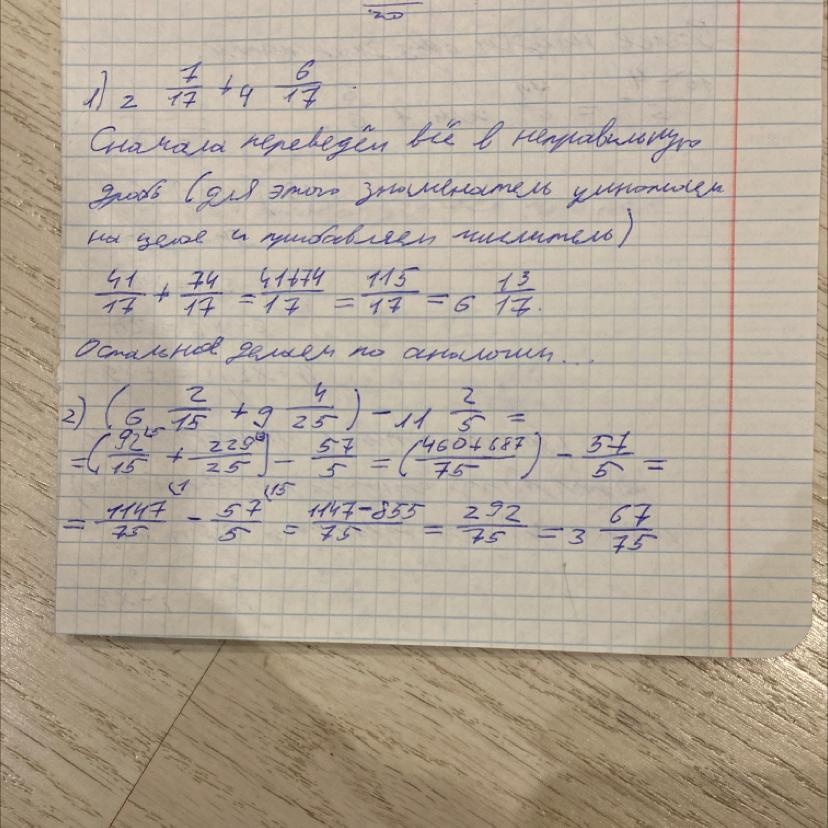 20
1) 2 7/17 + 4 6/17.
Сначала переведём всё в неправильную
дробь (для этого знаменатель умножаем
на целое и прибавляем числитель)
41/17 + 74/17 = 41+74/17 = 115/17 = 6 13/17.
Остальное делаем по аналогии...
2) (6 2/15 + 9 4/25) - 11 2/5 =
= (92/15 + 229/25) - 57/5 = (460+687/75) - 57/5 =
= 1147/75 - 57/5 = 1147-855/75 = 292/75 = 3 67/75